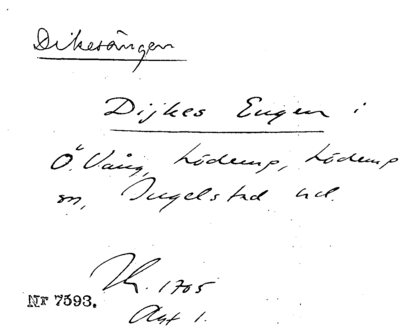 Dikesängen
Dijkes Engen i
Ö. Vång, Löderup, Löderup
sn, Ingelstad hd.
Lh. 1705
Nr 7593.
Akt 1.